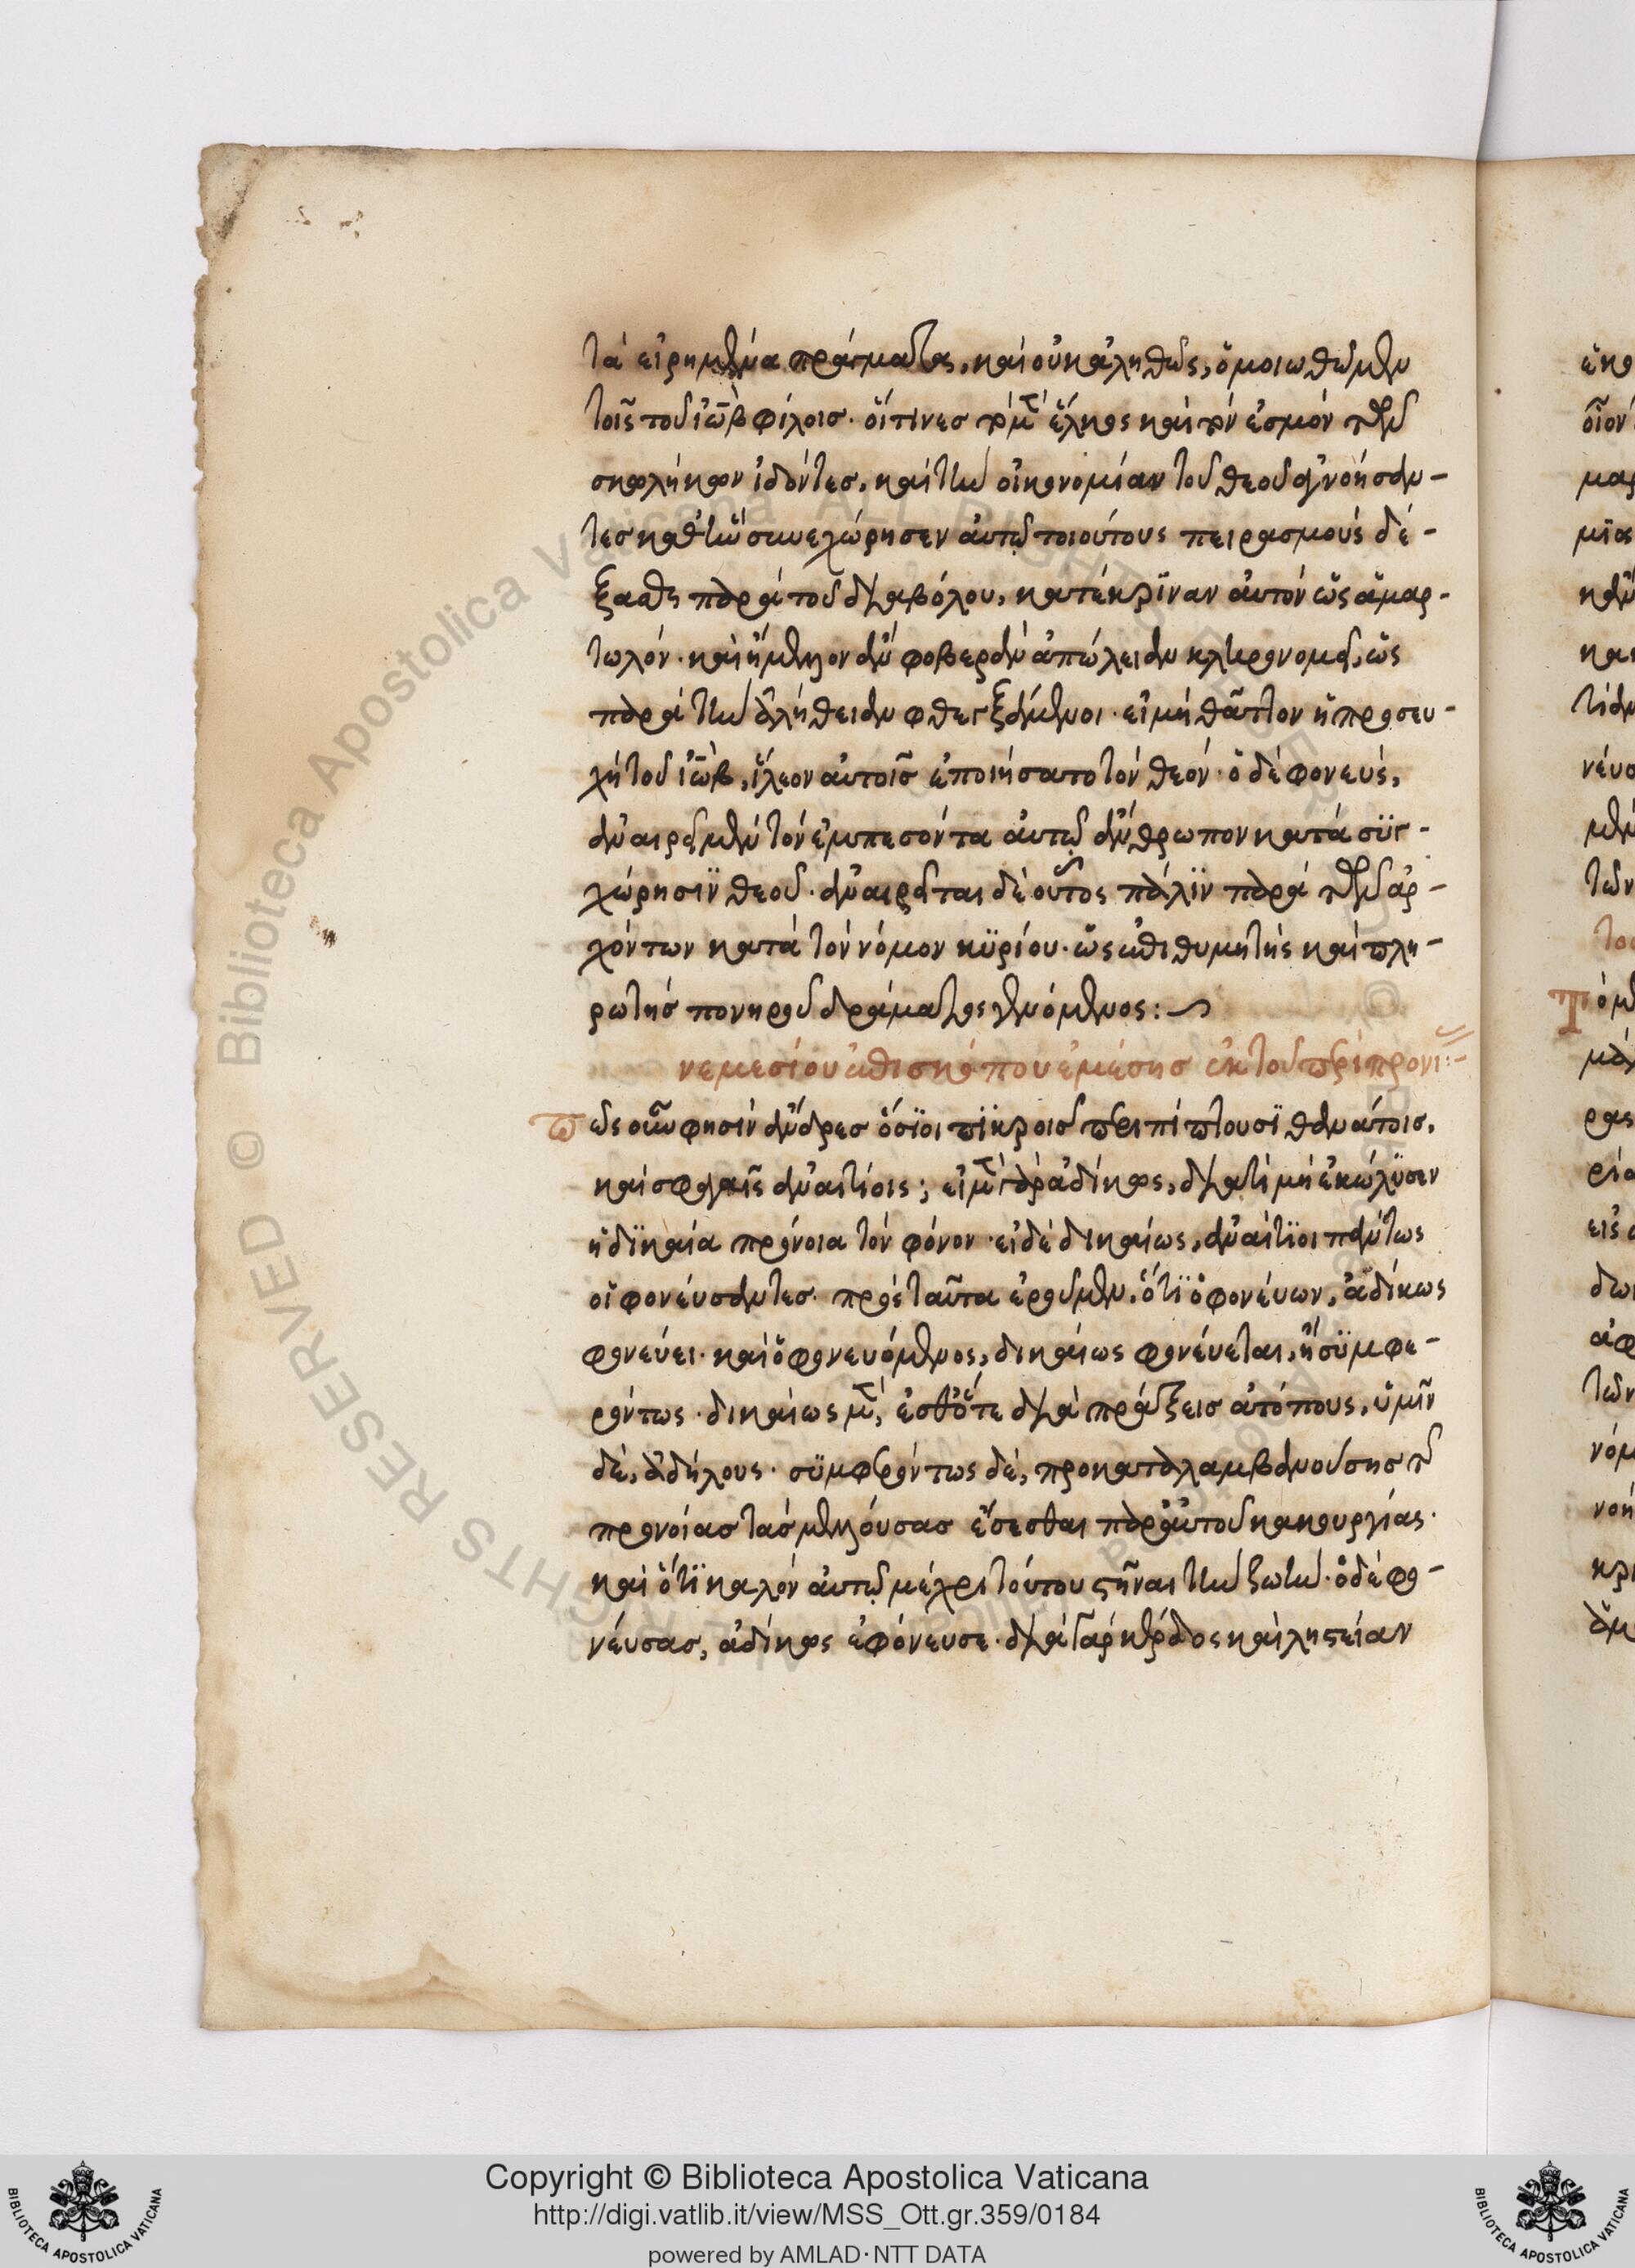 τὰ εἰρημένα πράγματα, καὶ οὐκ ἀληθῶς, ὁμοιωθῶμεν
τοῖς τοῦ ἰὼβ φίλοις· οἵτινες τὸ μὲν ἕλκος καὶ τὸν ἐσμὸν τῶν
σκωλήκων ἰδόντες, καὶ τὴν οἰκονομίαν τοῦ θεοῦ ἀγνοήσαν-
τες καθ' ἣν συνεχώρησεν αὐτῷ τοιούτους πειρασμοὺς δέ-
ξασθαι παρὰ τοῦ διαβόλου, κατέκρϊναν αὐτὸν ὡς ἁμαρ-
τωλόν· καὶ ἤμελλον ἂν φοβερὰν ἀπώλειαν κληρονομεῖν, ὡς
παρὰ τὴν ἀλήθειαν φθεγξάμενοι· εἰ μὴ θᾶττον ἡ προσευ-
χὴ τοῦ ἰὼβ, ἵλεον αὐτοῖς ἐποιήσατο τὸν θεόν· ὁ δὲ φονεὺς,
ἀναιρεῖ μὲν τὸν ἐμπεσόντα αὐτῷ ἄνθρωπον κατὰ συγ-
χώρησϊν θεοῦ· ἀναιρεῖται δὲ οὗτος πάλϊν παρὰ τῶν ἀρ-
χόντων κατὰ τὸν νόμον κϋρίου· ὡς ἐπιθυμητὴς καὶ πλη-
ρωτὴς πονηροῦ δράματος γενόμενος:
νεμεσίου ἐπισκόπου ἐμέσης ἐκ τοῦ περὶ προνι:-
πῶς οὖν φησὶν ἄνδρες ὅσϊοι πϊκροῖς περιπίπτουσϊ θανάτοις,
καὶ σφαγαῖς ἀναιτίοις; εἰ μὲν γὰρ ἀδίκως, διατί μὴ ἐκώλϋσεν
ἡ δϊκαία πρόνοια τὸν φόνον· εἰ δὲ δικαίως, ἀναίτϊοι πάντως
οἱ φονεύσαντες· πρὸς ταῦτα ἐροῦμεν, ὅτϊ ὁ φονεύων, ἀδίκως
φονεύει· καὶ ὁ φονευόμενος, δικαίως φονεύεται, ἢ σϋμφε-
ρόντως· δικαίως μὲν, ἐσθότε διὰ πράξεις ἀτόπους, ὑμῖν
δὲ, ἀδήλους· σϋμφερόντως δὲ, προκαταλαμβανούσης τῆς
προνοίας τὰς μελλούσας ἔσεσθαι παρ' αὐτοῦ κακουργίας·
καὶ ὅτϊ καλὸν αὐτῷ μέχρι τούτου στῆναι τὴν ζωήν· ὁ δὲ φο-
νεύσας, ἀδίκως ἐφόνευσε· διὰ γὰρ κέρδος καὶ ληστείαν
Copyright © Biblioteca Apostolica Vaticana
http://digi.vatlib.it/view/MSS_Ott.gr.359/0184
powered by AMLAD·NTT DATA